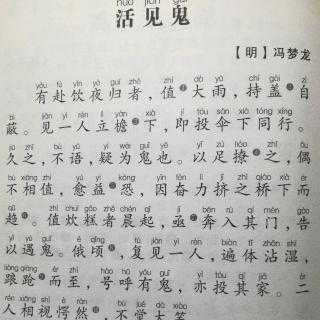 huó jiàn guǐ
活见鬼
【明】冯梦龙
yǒu fù yǐn yè guī zhě zhí dà yǔ chí gài zì
有赴饮夜归者，值大雨，持盖自
bì jiàn yì rén lì yán xià jí tóu sǎn xià tóng xíng
蔽。见一人立檐下，即投伞下同行。
jiǔ zhī bù yǔ yí wéi guǐ yě yǐ zú liáo zhī ǒu
久之，不语，疑为鬼也。以足撩之，偶
bù xiāng zhí yù yì kǒng yīn fèn lì jǐ zhī qiáo xià ér
不相值，愈益恐，因奋力挤之桥下而
qū zhí chuī gāo zhě chén qǐ jí bēn rù qí mén gào
趋。值炊糕者晨起，亟奔入其门，告
yǐ yù guǐ é qǐng fù jiàn yì rén biàn tǐ zhān shī
以遇鬼。俄顷，复见一人，遍体沾湿，
liàng qiàng ér zhì háo hū yǒu guǐ yì tóu qí jiā èr
踉跄而至，号呼有鬼，亦投其家。二
rén xiāng shì è rán bù jué dà xiào
人相视愕然，不觉大笑